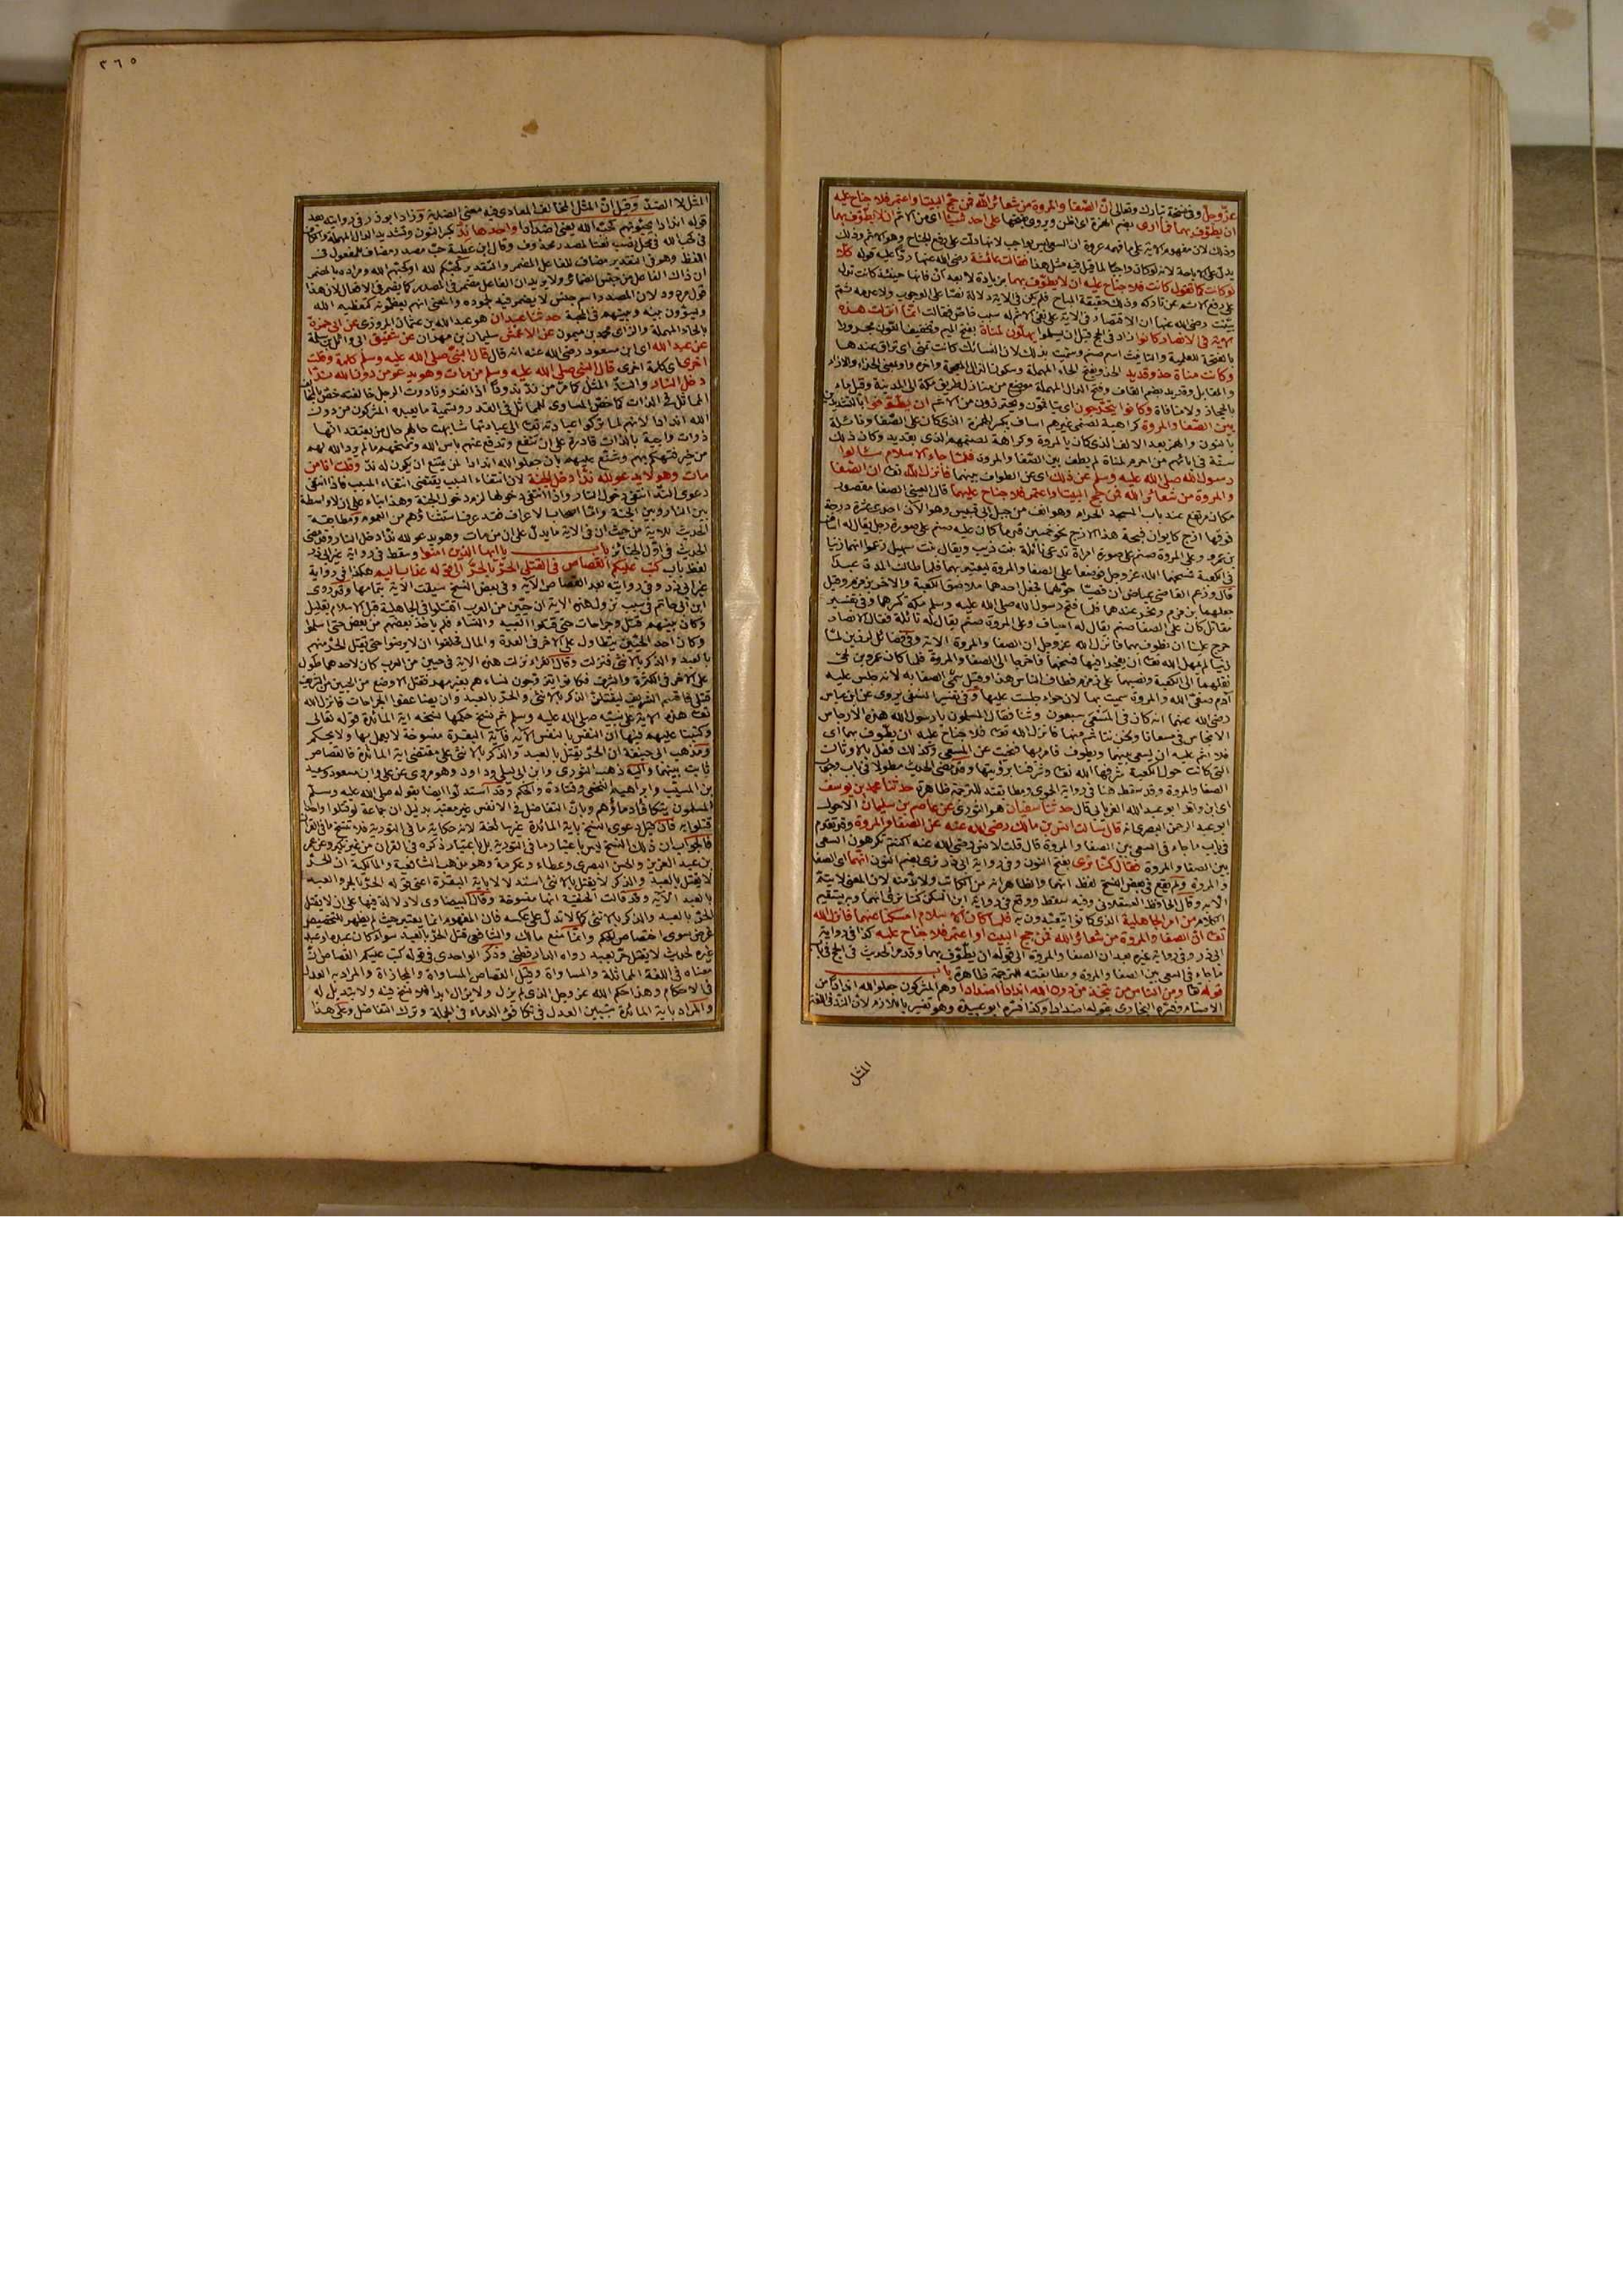 عزّ وجلّ وفى نسخة تبارك وتعالى انّ الصّفا والمروة من شعائر الله فمن حجّ البيت او اعتمر فلا جناح عليه
ان يطوّف بهما فما ارى بضم الهمزة اى اظن ويروى بفتحها على احد شيئا اى من الاثم ان لا يطوّف بهما
يدل على الاباحة لانه لو كان واجبا لما قيل فيه مثل هذا فقالت عائشة رضى الله عنها ردّا عليه قوله كلّا
لو كانت كما تقول كانت فلا جناح عليه ان لا يطوّف بهما بزيادة لا بعد ان فانها حينئذ كانت تدل
على رفع الاثم عن تاركه وذلك حقيقة المباح فلم يكن فى الاية دلالة نصّا على الوجوب ولا عدمه ثم
بيّنت رضى الله عنها ان الاقتصار فى الاية على نفى الاثم له سبب خاص فقالت انما انزلت هذه
الاية فى الانصار كانوا زاد فى الحج قبل ان يسلموا يهلّون لمناة بفتح الميم وتخفيف النون مجرورا
بالفتحة للعلمية والتانيث اسم صنم وسميت بذلك لان النسائك كانت تمنى اى تراق عندها
وكانت مناة حذو قديد الحذو بفتح الحاء المهملة وسكون الذال المعجمة واخره واو بمعنى الحذاء والازاء
والمقابل وقديد بضم القاف وفتح الدال المهملة موضع من منازل طريق مكة الى المدينة
وكانوا يتحرّجون اى يتاثمون ويحترزون من الاثم ان يطّوّفوا بالتشديد
بين الصّفا والمروة كراهية لصنمى غيرهم اساف بكسر الهمزة الذى كان على الصّفا ونائلة
بالنون والهمز بعد الالف الذى كان بالمروة وكراهة لصنمهم الذى بقديد وكان ذلك
سنّة فى ابائهم من احرم لمناة لم يطف بين الصّفا والمروة فلمّا جاء الاسلام سالوا
رسول الله صلى الله عليه وسلم عن ذلك اى عن الطواف بينهما فانزل الله تعـ ان الصّفا
والمروة من شعائر الله فمن حج البيت او اعتمر فلا جناح عليهما قال العينى الصفا مقصور
مكان مرتفع عند باب المسجد الحرام وهو انف من جبل ابى قبيس وهو الآن احدى عشرة درجة
بن عمرو وعلى المروة صنم على صورة امراة تدعى نائلة بنت ذيب ويقال بنت سهيل زعموا انهما زنيا
فى الكعبة فمسخهما الله عز وجل فوضعا على الصفا والمروة ليعتبر بهما فلما طالت المدة عبدا
قال وزعم القاضى عياض ان قصيّا حوّلهما فجعل احدهما ملاصق الكعبة والاخر بزمزم وقيل
جعلهما بزمزم ونحر عندهما فلما فتح رسول الله صلى الله عليه وسلم مكة كسرهما وفى تفسير
مقاتل كان على الصفا صنم يقال له اساف وعلى المروة صنم يقال له نائلة فقال الانصار
حرج علينا ان نطوف بهما فانزل الله عز وجل ان الصفا والمروة الاية
نقلهما الى الكعبة ونصبهما على زمزم فطاف الناس بهما وقيل سمّى الصفا به لانه جلس عليه
آدم صفىّ الله والمروة سميت بها لان حواء جلست عليها وفى تفسير النسفى يروى عن ابن عباس
رضى الله عنهما انه كان فى المسعى سبعون وثنا فقال المسلمون يا رسول الله هذه الارجاس
الانجاس فى مسعانا ونحن نتاثم منها فانزل الله تعـ فلا جناح عليه ان يطّوّف بهما اى
فلا اثم عليه ان يسعى بينهما ويطوف فامر بها فنحيت عن المسعى وكذلك فعل بالاوثان
التى كانت حول الكعبة شرفها الله تعـ وشرفنا برؤيتها وقد مضى الحديث مطولا فى باب وجوب
الصفا والمروة وقد سقط هنا فى رواية الحموى ومطابقته للترجمة ظاهرة حدثنا محمد بن يوسف
اى ابن واقد ابو عبد الله الفريابى قال حدثنا سفيان هو الثورى عن عاصم بن سليمان الاحول
ابو عبد الرحمن البصرى انه قال سالت انس بن مالك رضى الله عنه عن الصّفا والمروة وقد تقدم
فى باب ما جاء فى السعى بين الصفا والمروة قال قلت لانس رضى الله عنه اكنتم تكرهون السعى
بين الصفا والمروة فقال كنّا نرى بفتح النون وفى رواية ابى ذر نرى بضم النون انهما اى الصفا
والمروة ولم يقع فى بعض النسخ لفظ انهما والظاهر انه من الكاتب ولا بدّ منه لان المعنى لا يتم
الا به وقال الحافظ العسقلانى وفيه سقط ووقع فى رواية ابن السكن كنا نرى انهما وبه يستقيم
الكلام من امر الجاهلية الذى كانوا يتعبدون به فلما كان الاسلام امسكنا عنهما فانزل الله
تعـ انّ الصفا والمروة من شعائر الله فمن حج البيت او اعتمر فلا جناح عليه كذا فى رواية
ابى ذر وفى رواية غيره بعد ان الصفا والمروة الى قوله ان يطّوّف بهما وقد مر الحديث فى الحج فى باب
ما جاء فى السعى بين الصفا والمروة ومطابقته للترجمة ظاهرة باب
قوله تعا ومن الناس من يتخذ من دون الله اندادا اضدادا وهم المشركون جعلوا لله اندادا من
الاصنام وفسّره البخارى بقوله اضدادا وكذا فسّره ابو عبيدة وهو تفسير باللازم لان الندّ فى اللغة
المثل
٣٦٥
المثل لا الضدّ وقيل انّ المثل المخالف المعادى فيه معنى الضدية وزاد ابو ذر فى روايته بعد
قوله اندادا يحبّونهم كحبّ الله يعنى اضدادا واحدها ندّ بكسر النون وتشديد الدال المهملة
فى كحب الله فى محل نصب نعتا لمصدر محذوف وقال ابن عطية حبّ مصدر مضاف للمفعول فى
اللفظ وهو فى التقدير مضاف للفاعل المضمر والتقدير كحبّكم لله او كحبّهم الله ومراده بالمضمر
ان ذلك الفاعل من جنس الضمائر ولا يريد ان الفاعل مضمر فى المصدر كما يضمر فى الافعال لان هذا
قول مردود لان المصدر اسم جنس لا يضمر فيه لجموده والمعنى انهم يعظّمونه كتعظيم الله
ويسوّون بينه وبينهم فى المحبة حدثنا عبدان هو عبد الله بن عثمان المروزى عن ابى حمزة
بالحاء المهملة والزاى محمد بن ميمون عن الاعمش سليمان بن مهران عن شقيق ابى وائل بن سلمة
عن عبد الله اى ابن مسعود رضى الله عنه انه قال قال النبىّ صلى الله عليه وسلم كلمة وقلت
اخرى اى كلمة اخرى قال النبى صلى الله عليه وسلم من مات وهو يدعو من دون الله ندّا
دخل النار والندّ المثل كما مرّ من ندّ ندودا اذا نفر وناددت الرجل خالفته خصّ بالمخالف
المماثل فى الذات كما خصّ المساوى للمماثل فى القدر وتسمية ما يعبده المشركون من دون
الله اندادا لانهم لما تركوا عبادته تعـ الى عبادتها شابهت حالهم حال من يعتقد انها
ذوات واجبة بالذات قادرة على ان تدفع عنهم باس الله وتمنحهم ما لم يرد الله بهم
من خير فتهكّم بهم وشنّع عليهم بان جعلوا لله اندادا لمن يمتنع ان يكون له ندّ وقلت انا من
مات وهو لا يدعو لله ندّا دخل الجنة لان انتفاء السبب يقتضى انتفاء المسبب فاذا انتفى
دعوى الندّ انتفى دخول النار واذا انتفى دخولها لزم دخول الجنة وهذا بناء على ان لا واسطة
بين النار وبين الجنة وامّا اصحاب الاعراف فقد عرف استثناؤهم من العموم ومطابقة
الحديث للاية من حيث ان فى الاية ما يدلّ على ان من مات وهو يدعو لله ندّا دخل النار وقد مضى
الحديث فى اوّل الجنائز باب يا ايها الذين امنوا وسقط فى رواية غير ابى ذر
لفظ باب كتب عليكم القصاص فى القتلى الحرّ بالحرّ الى قوله عذاب اليم هكذا فى رواية
غير ابى ذر وفى روايته بعد القصاص الاية وفى بعض النسخ سيقت الاية بتمامها وقد روى
ابن ابى حاتم فى سبب نزول هذه الاية ان حيّين من العرب اقتتلوا فى الجاهلية قبل الاسلام بقليل
وكان بينهم قتل وجراحات حتى قتلوا العبيد والنساء فلم ياخذ بعضهم من بعض حتى اسلموا
وكان احد الحيّين يتطاول على الاخر فى العدة والمال فحلفوا ان لا يرضوا حتى يقتل الحرّ منهم
بالعبد والذكر بالانثى فنزلت وقال الفراء نزلت هذه الاية فى حيين من العرب كان لاحدهما طول
على الاخر فى الكثرة والشرف فكانوا يتزوجون نساءهم بغير مهر فقتل الاوضع من الحيين من الشريف
قتلى فاقسم الشريف ليقتلنّ الذكر بالانثى والحر بالعبد وان يضاعفوا الجراحات فانزل الله
تعـ هذه الاية على نبيّه صلى الله عليه وسلم ثم نسخ حكمها نسخه اية المائدة قوله تعالى
وكتبنا عليهم فيها ان النفس بالنفس الاية فاية البقرة منسوخة لا يعمل بها ولا يحكم
ومذهب ابى حنيفة ان الحرّ يقتل بالعبد والذكر بالانثى على مقتضى اية المائدة فالقصاص
ثابت بينهما واليه ذهب الثورى وابن ابى ليلى وداود وهو مروى عن على وابن مسعود وسعيد
بن المسيّب وابراهيم النخعى وقتادة والحكم وقد استدلّوا ايضا بقوله صلى الله عليه وسلم
المسلمون يتكافأ دماؤهم وبان التفاضل فى الانفس غير معتبر بدليل ان جماعة لو قتلوا واحدا
قتلوا به فان قيل دعوى النسخ باية المائدة غير سائغة لانه حكاية ما فى التورية فلا تنسخ ما فى القرآن
فالجواب ان ذلك النسخ ليس باعتبار ما فى التورية بل باعتبار ذكره فى القران من غير نكير وعن عمر
بن عبد العزيز والحسن البصرى وعطاء وعكرمة وهو مذهب الشافعية والمالكية ان الحرّ
لا يقتل بالعبد والذكر لا يقتل بالانثى استدلالا باية البقرة اعنى قوله الحرّ بالحر والعبد
بالعبد الاية وقد قالت الحنفية انها منسوخة وقال البيضاوى لا دلالة فيها على ان لا يقتل
الحرّ بالعبد والذكر بالانثى كما لا تدل على عكسه فان المفهوم انما يعتبر حيث لم يظهر للتخصيص
غرض سوى اختصاص الحكم وانما منع مالك والشافعى قتل الحرّ بالعبد سواء كان عبده او عبد
غيره لحديث لا يقتل حرّ بعبد رواه الدارقطنى وذكر الواحدى فى قوله كتب عليكم القصاص انّ
معناه فى اللغة المماثلة والمساواة وقيل القصاص المساواة والمجازاة والمراد به العدل
فى الاحكام وهذا حكم الله عز وجل الذى لم يزل ولا يزال ابدا فلا نسخ فيه ولا تبديل له
والمراد باية المائدة تبيين العدل فى تكافؤ الدماء فى الجملة وترك التفاضل وعلى هذا